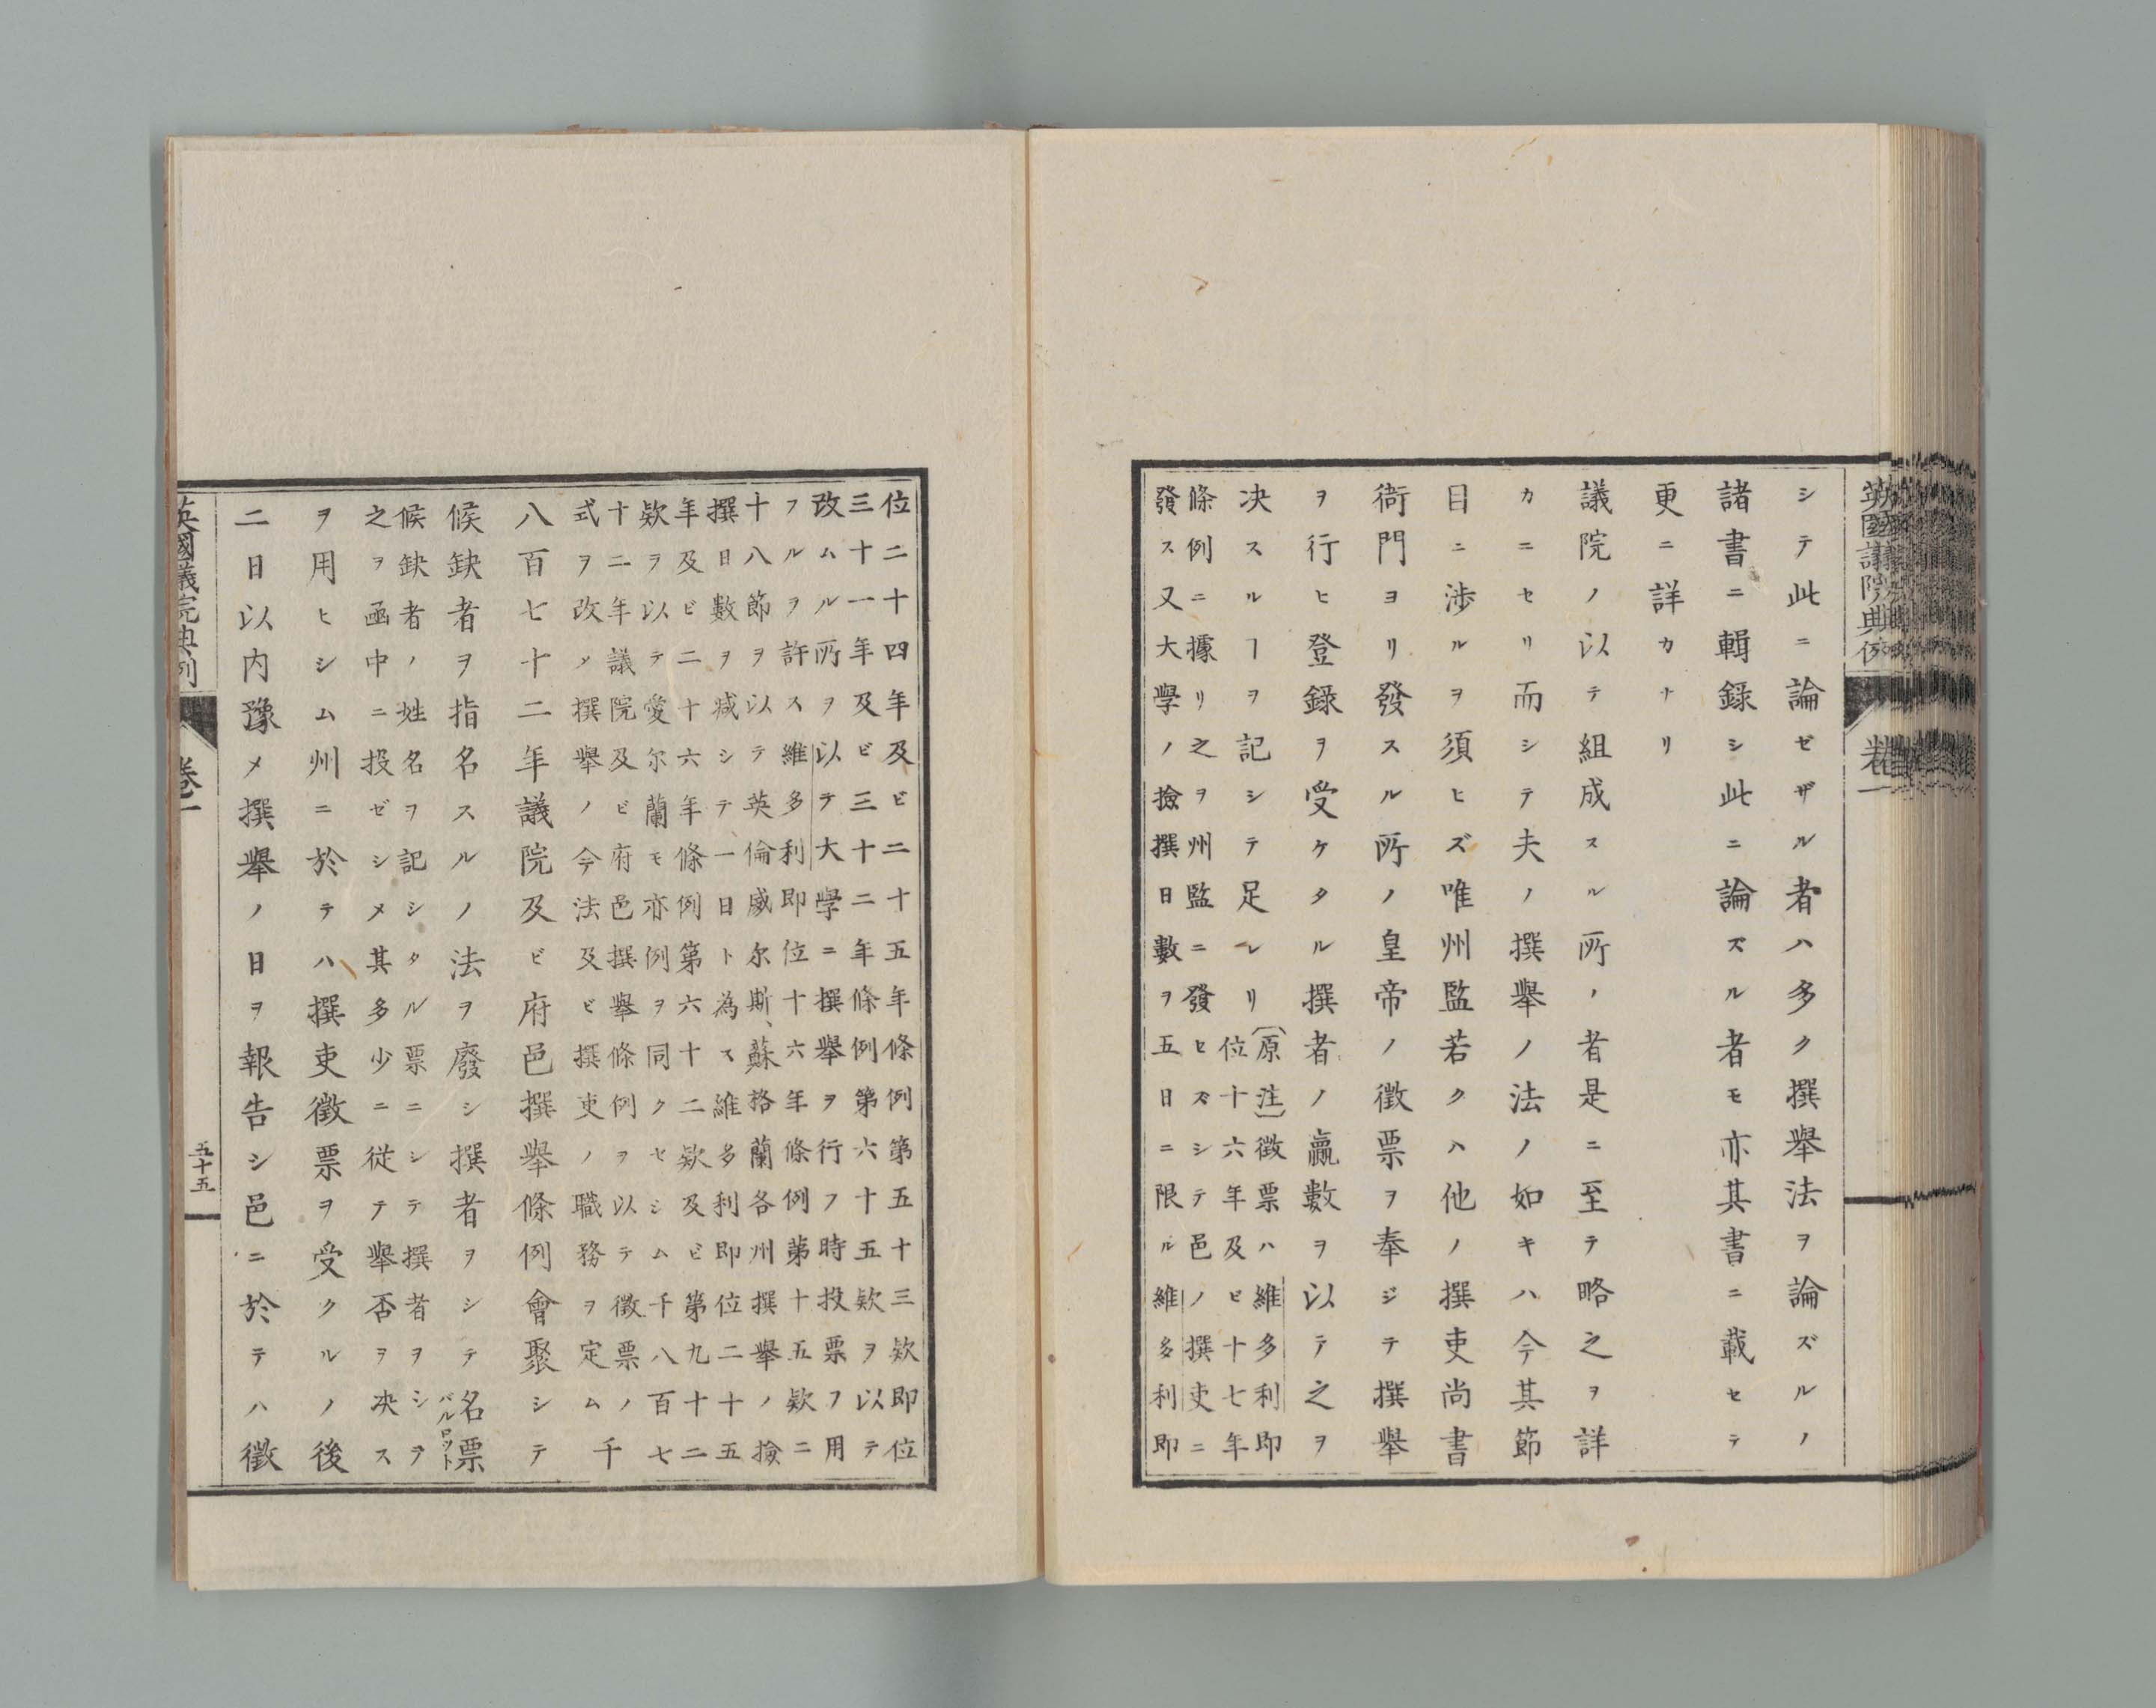 英國議院典例
卷一
シテ此ニ論ゼザル者ハ多ク撰擧法ヲ論ズルノ
諸書ニ輯録シ此ニ論ズル者モ亦其書ニ載セテ
更ニ詳カナリ
議院ノ以テ組成スル所ノ者是ニ至テ略之ヲ詳
カニセリ而シテ夫ノ撰擧ノ法ノ如キハ今其節
目ニ渉ルヲ須ヒズ唯州監若クハ他ノ撰吏尚書
衙門ヨリ發スル所ノ皇帝ノ徴票ヲ奉ジテ撰擧
ヲ行ヒ登録ヲ受ケタル撰者ノ贏數ヲ以テ之ヲ
决スルヿヲ記シテ足レリ
(原注)徴票ハ維多利即
位十六年及ビ十七年
條例ニ據リ之ヲ州監ニ發セズシテ邑ノ撰吏ニ
發ス又大學ノ撿撰日數ヲ五日ニ限ル維多利即
位二十四年及ビ二十五年條例第五十三欵即位
三十一年及ビ三十二年條例第六十五欵ヲ以テ
改ムル所ヲ以テ大學ニ撰擧ヲ行フ時投票ヲ用
フルヲ許ス維多利即位十六年條例第十五欵ニ
十八節ヲ以テ英倫威尔斯、蘇格蘭各州撰擧ノ撿
撰日數ヲ減シテ一日ト為ス維多利即位二十五
年及ビ二十六年條例第六十二欵及ビ第九十二
欵ヲ以テ愛尔蘭モ亦例ヲ同クセシム千八百七
十二年議院及ビ府邑撰擧條例ヲ以テ徴票ノ
式ヲ改メ撰擧ノ今法及ビ撰吏ノ職務ヲ定ム
千
八百七十二年議院及ビ府邑撰擧條例會聚シテ
候缺者ヲ指名スルノ法ヲ廢シ撰者ヲシテ名票
バルロット
候缺者ノ姓名ヲ記シタル票ニシテ撰者ヲシヲ
之ヲ凾中ニ投ゼシメ其多少ニ従テ擧否ヲ决ス
ヲ用ヒシム州ニ於テハ撰吏徴票ヲ受クルノ後
二日以内豫メ撰擧ノ日ヲ報告シ邑ニ於テハ徴
英國議院典例
卷一
五十五